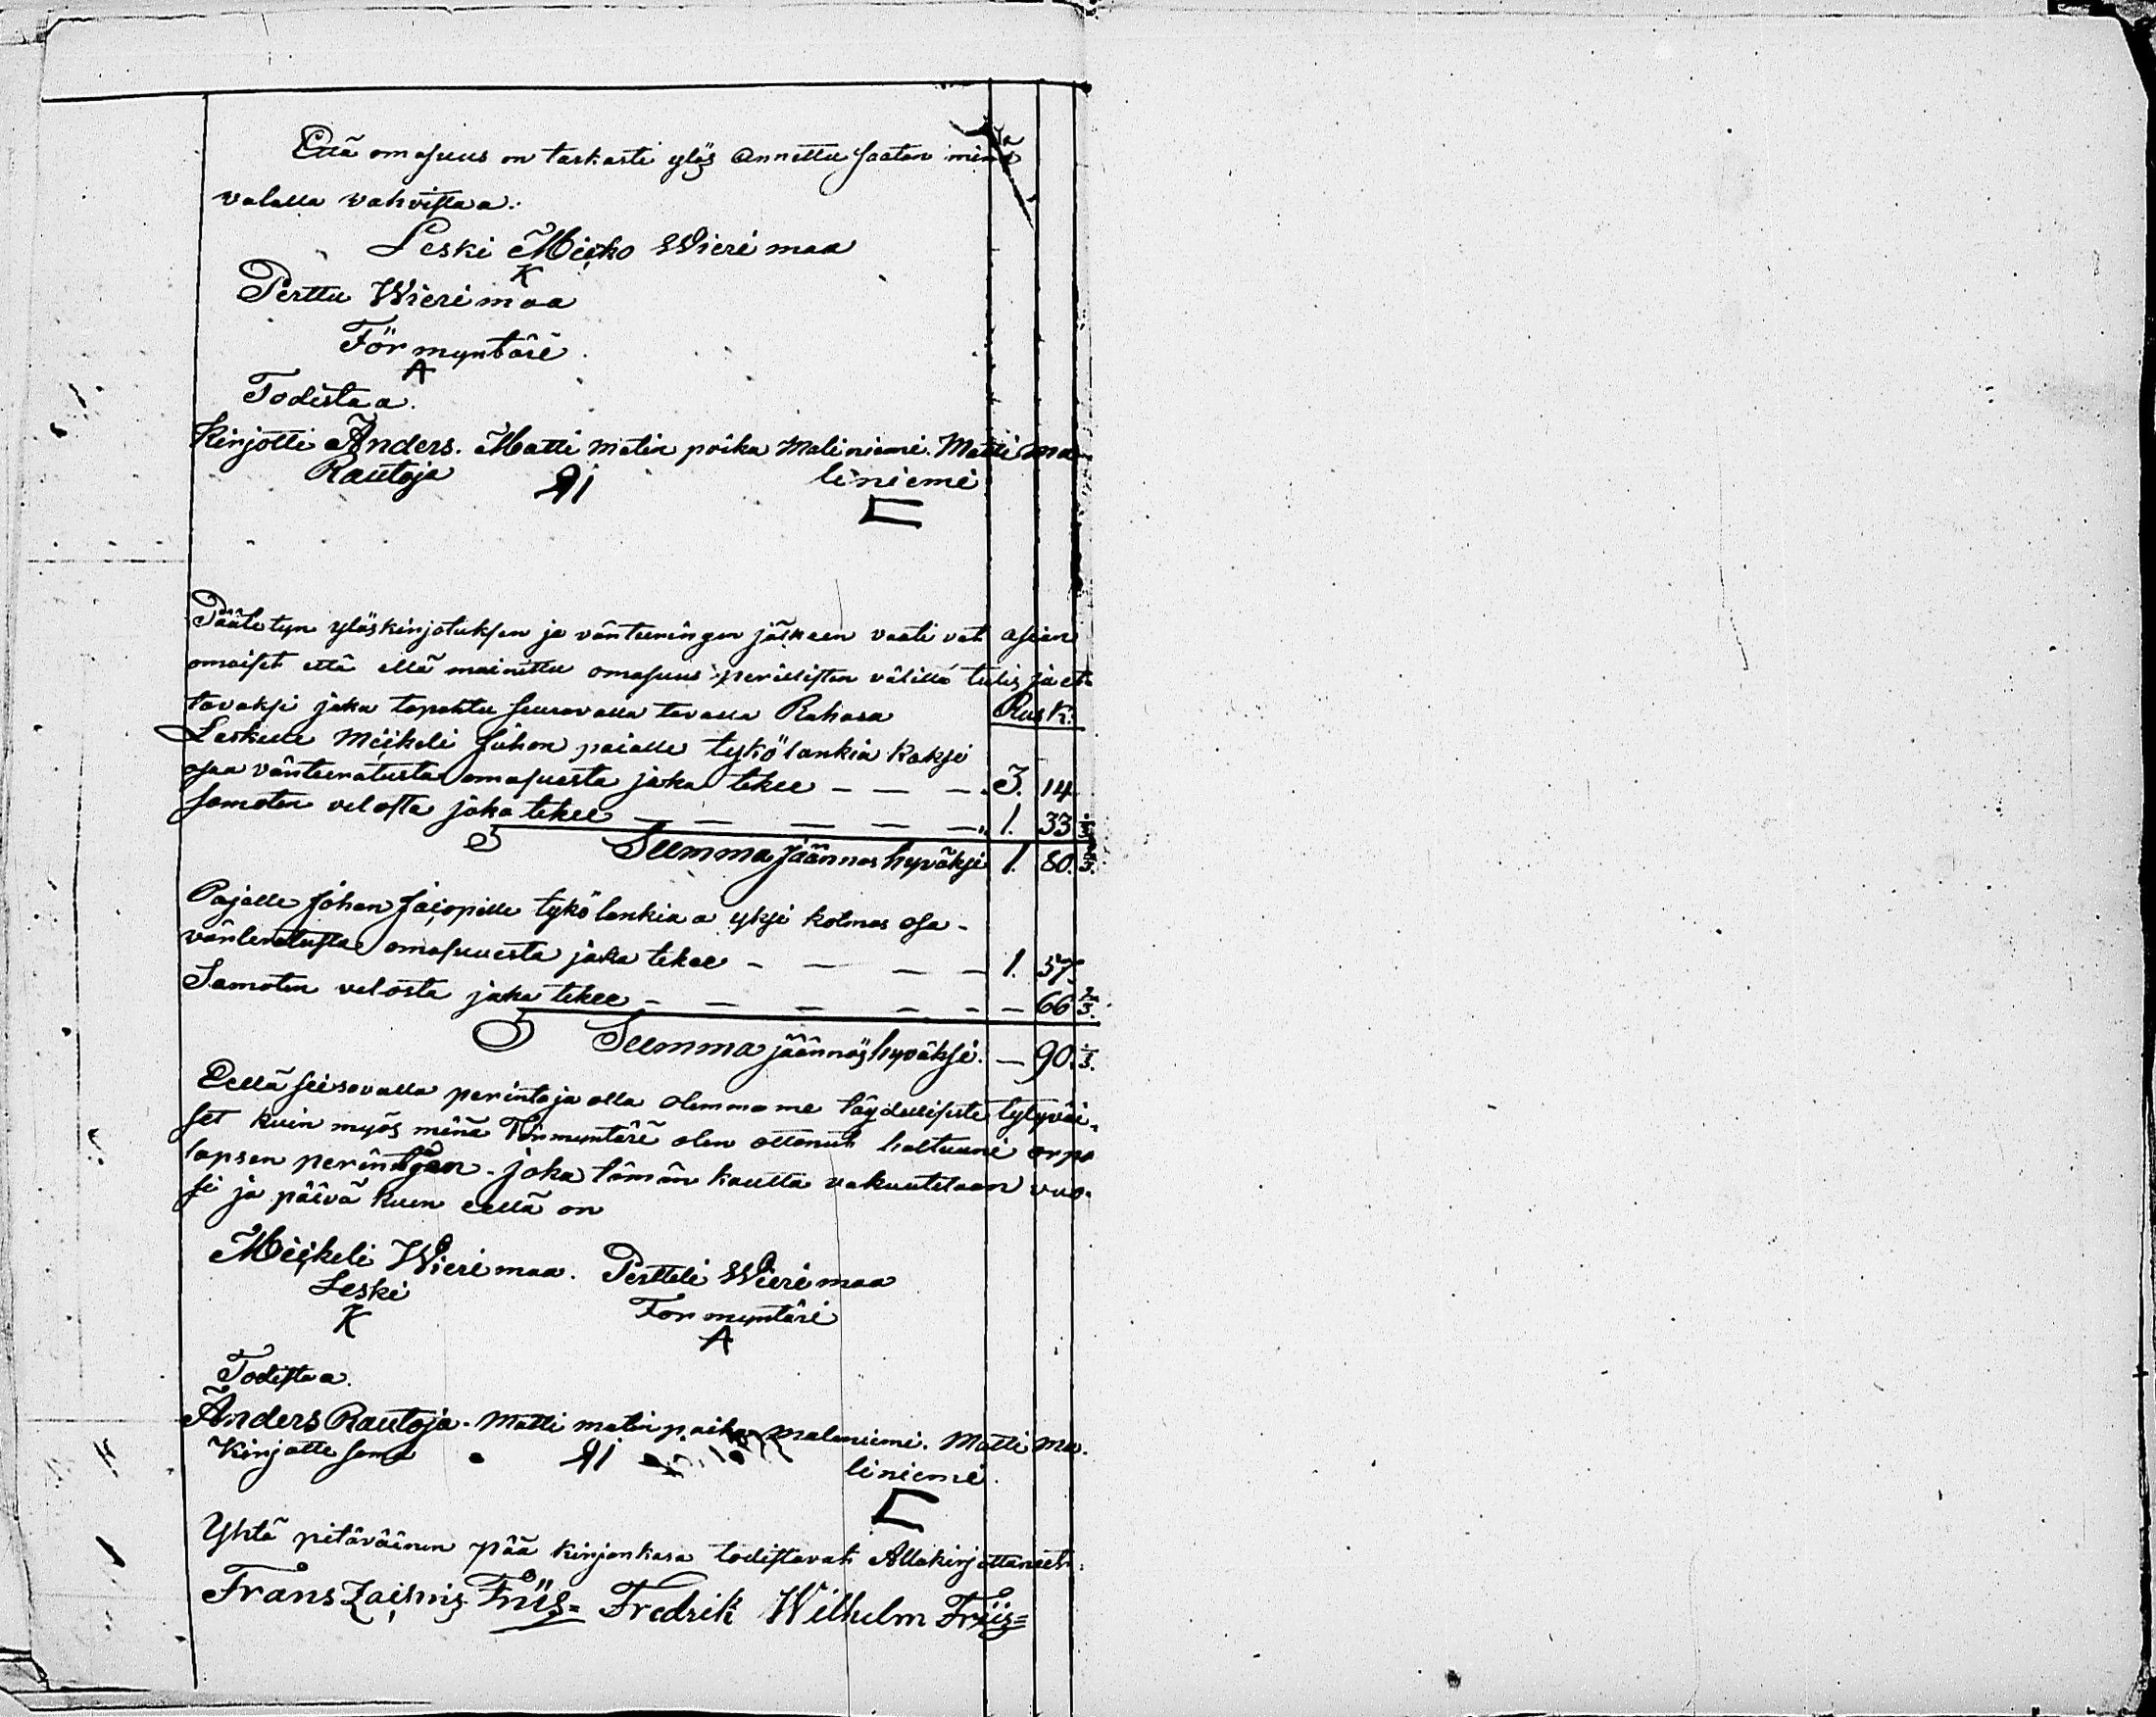 Että omasuus on tarkasti ylös annettu saatan minä
valalla vahvistaa.
Leski Miiko Wierimaa
K
Perttu Wierimaa
För myntäri
A
Todistaa.
Kirjotti Anders. Matti Matin poika Maliniemi. Matti Ma
Rautoja
liniemi
Päätetyn ylöskirjotuksen ja vänteeringin jälkeen vaati vat asian
omaiset että ellä mainittu omasuus perillisten välillä tulis jaet
tavaksi joka tapahtu seuravalla tavalla Rahasa Rus K.
Leskelle Miikeli Juhon poialle tykölankia kaksi
osaa vänteeratusta omasuesta joka tekee — — — 3. 14.
samoten velosta joka tekee — — — — — 1. 33 1/3
Summa jäännös hyväksi 1. 80. 2/3.
Pojalle Johan Jaiopille tykö lankiaa yksi kolmas osa-
vänteratusta omasuuesta joka tekee — — — — 1. 57.
Samoten velosta joka tekee — — — — — — 66 2/3.
Summa jäännös hyväksi. — 90. 1/3.
Eellä seisovalla perintojaolla olemmome täydellisesti tytyväi-
set kuin myös minä Förmyntäri olen ottanut haltuuni orpo
lapsen perintöän. joka tämän kautta vakuutetaan vuo-
si ja päivä kuin eellä on
Miikeli Wierimaa. Pertteli Wierimaa
Leski Formyntäri
K A
Todistaa.
Anders Rautoja. Matti matin poika maliniemi. Matti Ma.
Kirjotti sama liniemi.
Yhtä pitäväinen pää kirjankasa todistavat Allakirjottaneet.
Frans Friis= Fredrik Wilhelm Friis=